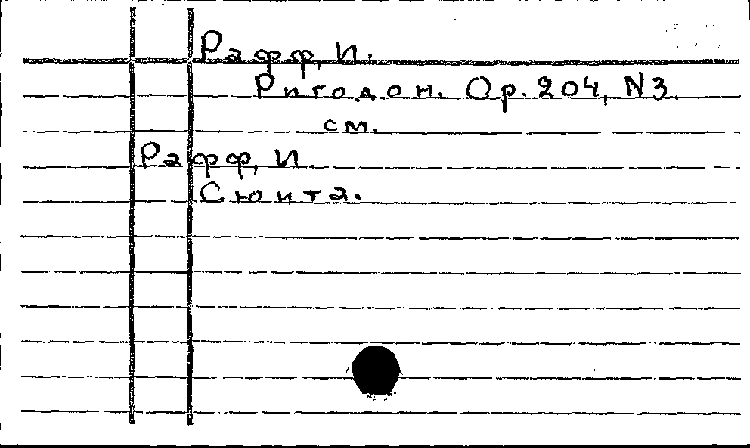 Рафф, И.
Ригодон. Op. 204, N3.
см.
Рафф, И.
Сюита.